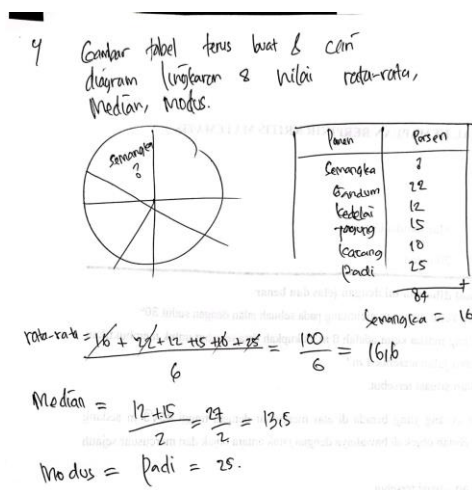 4 Gambar tabel terus buat & cari
diagram lingkaran & nilai rata-rata,
Median, Modus.
Semangka
?
Panen Persen
Semangka ?
Gandum 22
kedelai 12
jagung 15
kacang 10
Padi 25
84 +
Semangka = 16
rata-rata = 16 + 22 + 12 + 15 + 10 + 25 = 100 = 16,6
6 6
Median = 12 + 15 = 27 = 13,5
2 2
Modus = Padi = 25.